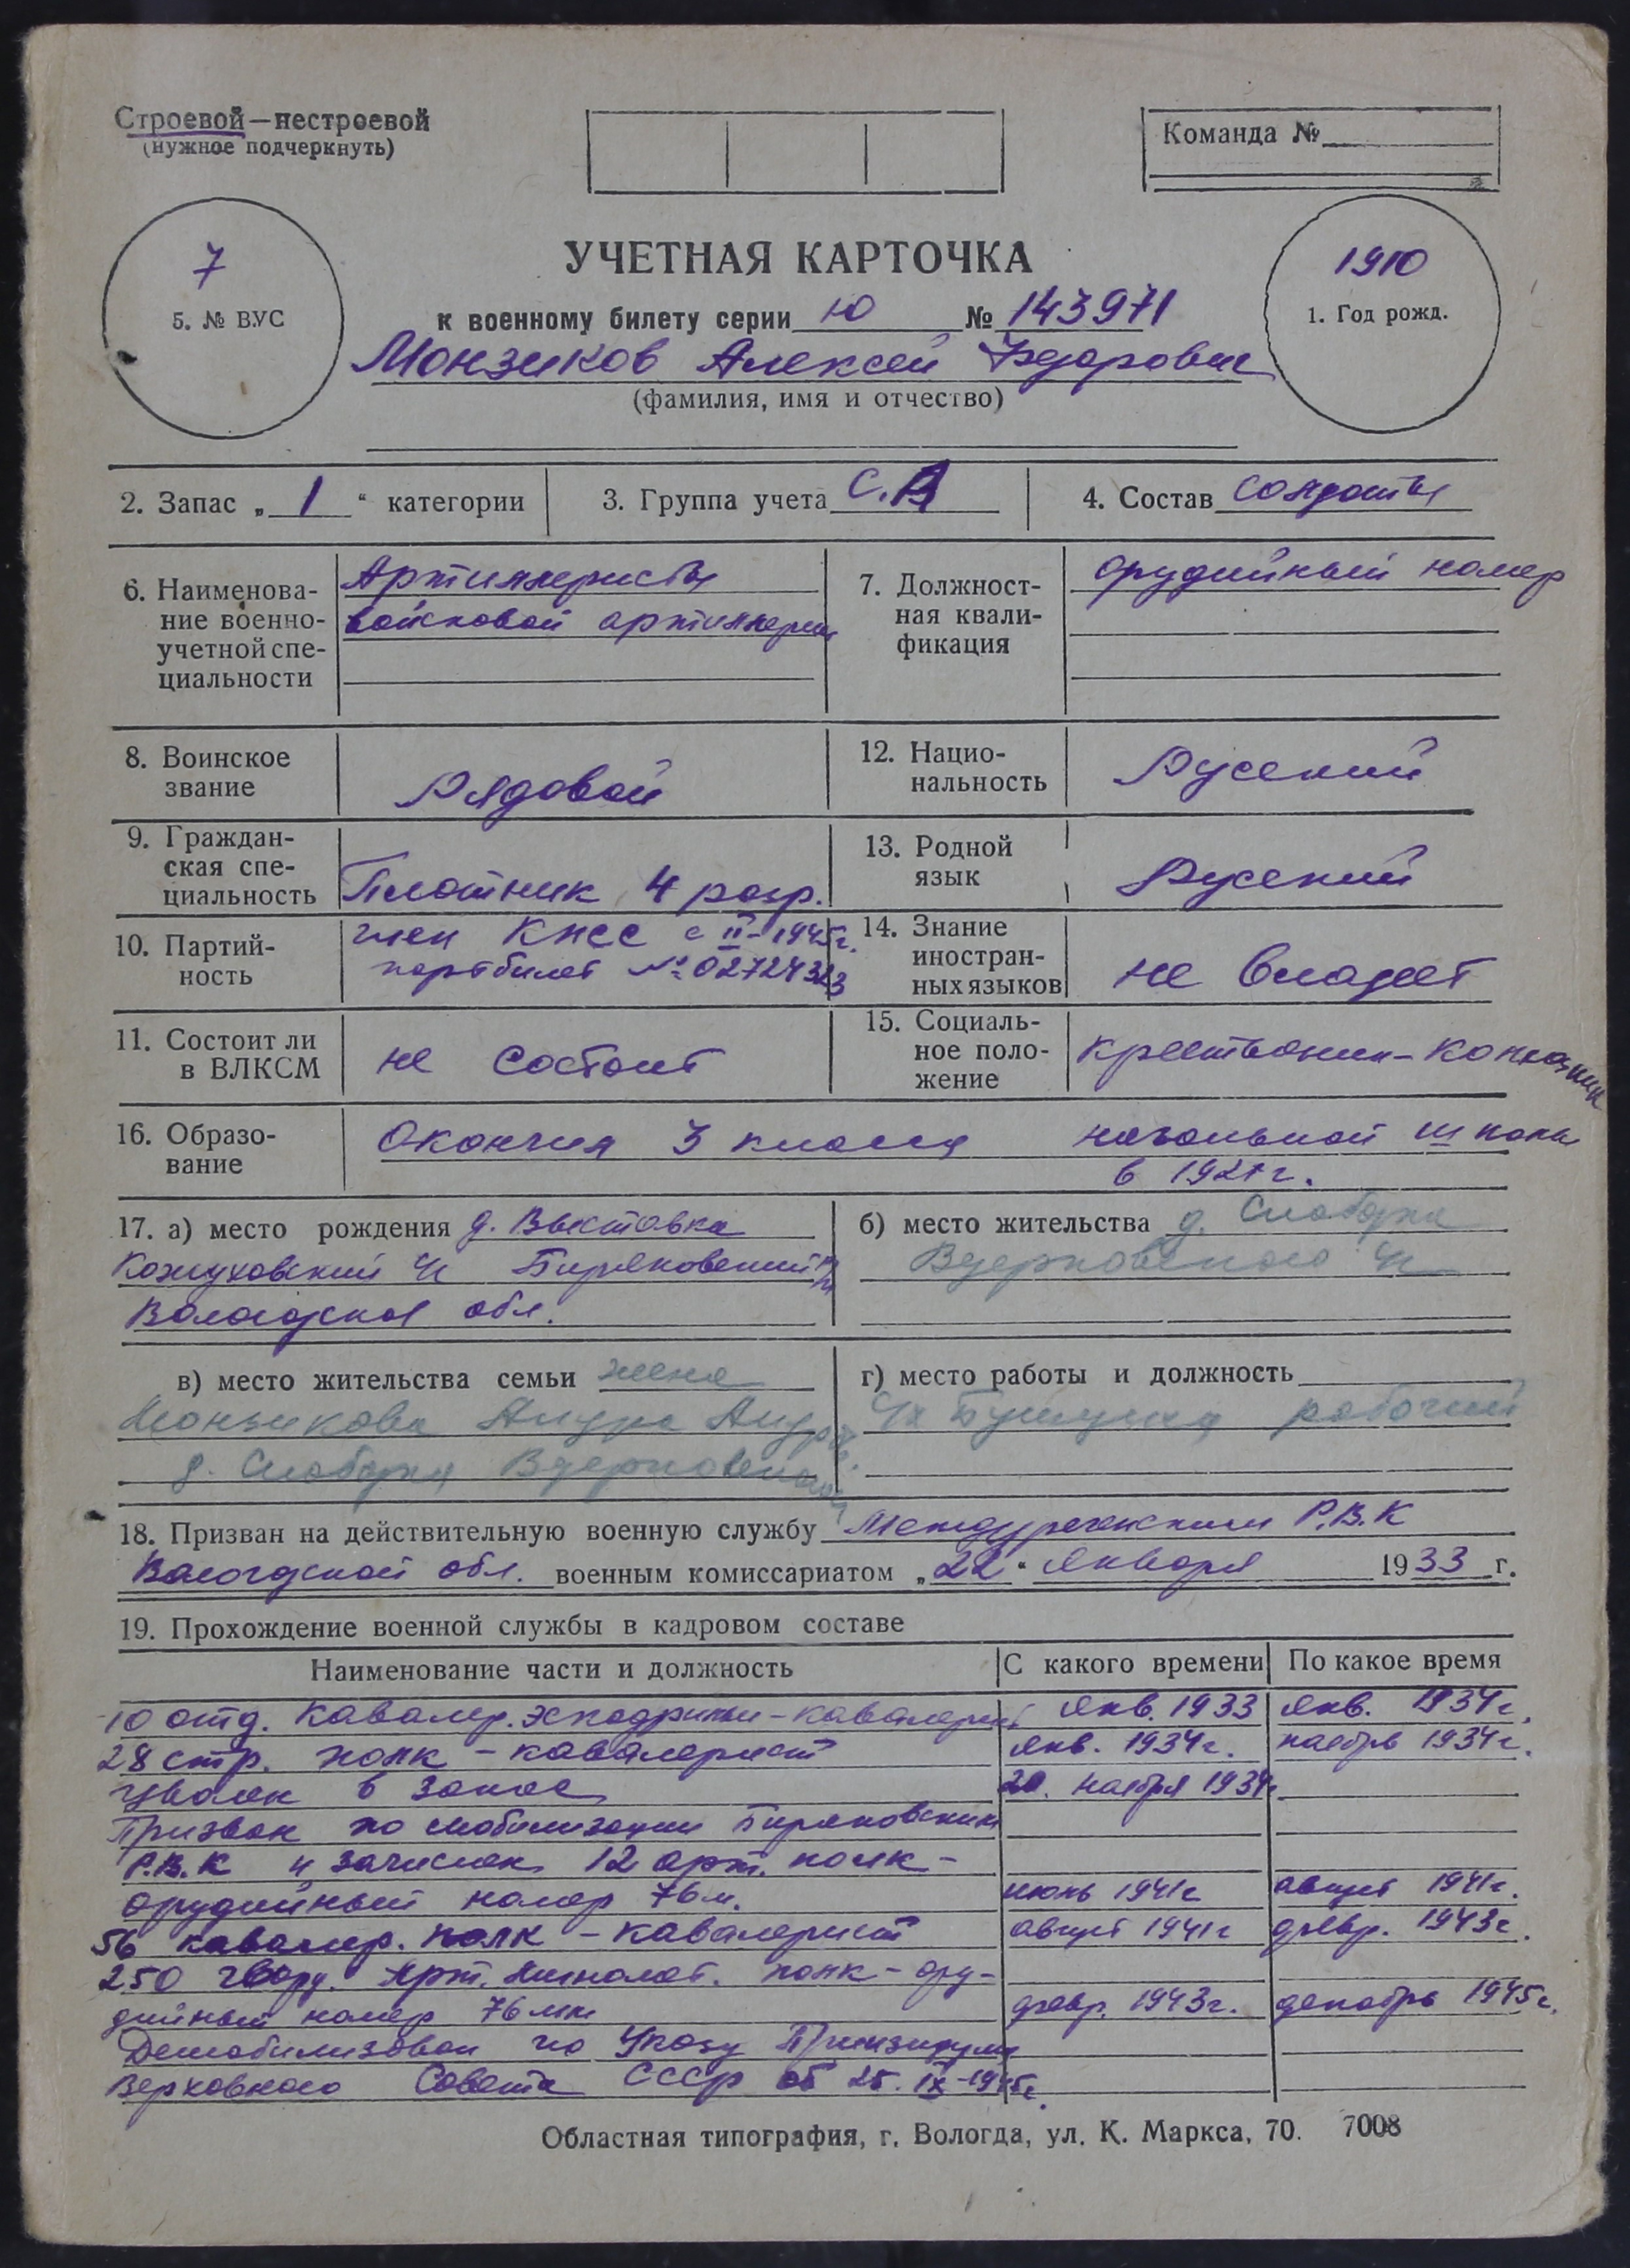 Строевой—нестроевой
(нужное подчеркнуть)
Команда №
7
5. № ВУС
УЧЕТНАЯ КАРТОЧКА
1910
1. Год рожд.
к военному билету серии Ю № 143971
Монзиков Алексей Федорович
(фамилия, имя и отчество)
2. Запас „1“ категории
3. Группа учета С.А
4. Состав солдаты
6. Наименова-
ние военно-
учетной спе-
циальности
Артиллеристы
войсковой артиллерии
7. Должност-
ная квали-
фикация
орудийный номер
8. Воинское
звание
Рядовой
12. Нацио-
нальность
Русский
9. Граждан-
ская спе-
циальность
Плотник 4 разр.
13. Родной
язык
Русский
10. Партий-
ность
член КПСС с II-1945г.
партбилет № 02724323
14. Знание
иностран-
ных языков
не владеет
11. Состоит ли
в ВЛКСМ
не состоит
15. Социаль-
ное поло-
жение
крестьянин-колхозник
16. Образо-
вание
Окончил 3 класса начальной школы
в 1921г.
17. а) место рождения д. Выставка
Кожуховский с/с Биряковский р-н
Вологодская обл.
б) место жительства д. Слободка
с/с
в) место жительства семьи жена
Монзикова
д. Слободка
г) место работы и должность
рабочий
18. Призван на действительную военную службу Междуреченским Р.В.К
Вологодской обл. военным комиссариатом „22“ января 1933 г.
19. Прохождение военной службы в кадровом составе
Наименование части и должность
С какого времени
По какое время
10 отд. Кавалер. эскадрильи - кавалерист янв. 1933 янв. 1934г.
28 стр. полк - кавалерист янв. 1934г. ноябрь 1934г.
Уволен в запас 20. ноября 1934г
Призван по мобилизации Биряковским
Р.В.К и зачислен 12 арт. полк -
орудийный номер 76м. июль 1941г август 1941г.
56 кавалер. полк - кавалерист август 1941г февр. 1943г.
250 гвард. Арт. Миномет. полк - ору-
дийный номер 76мм февр. 1943г. декабрь 1945г.
Демобилизован по Указу Президиума
Верховного Совета СССР от 25.IX-1945г.
Областная типография, г. Вологда, ул. К. Маркса, 70. 7008